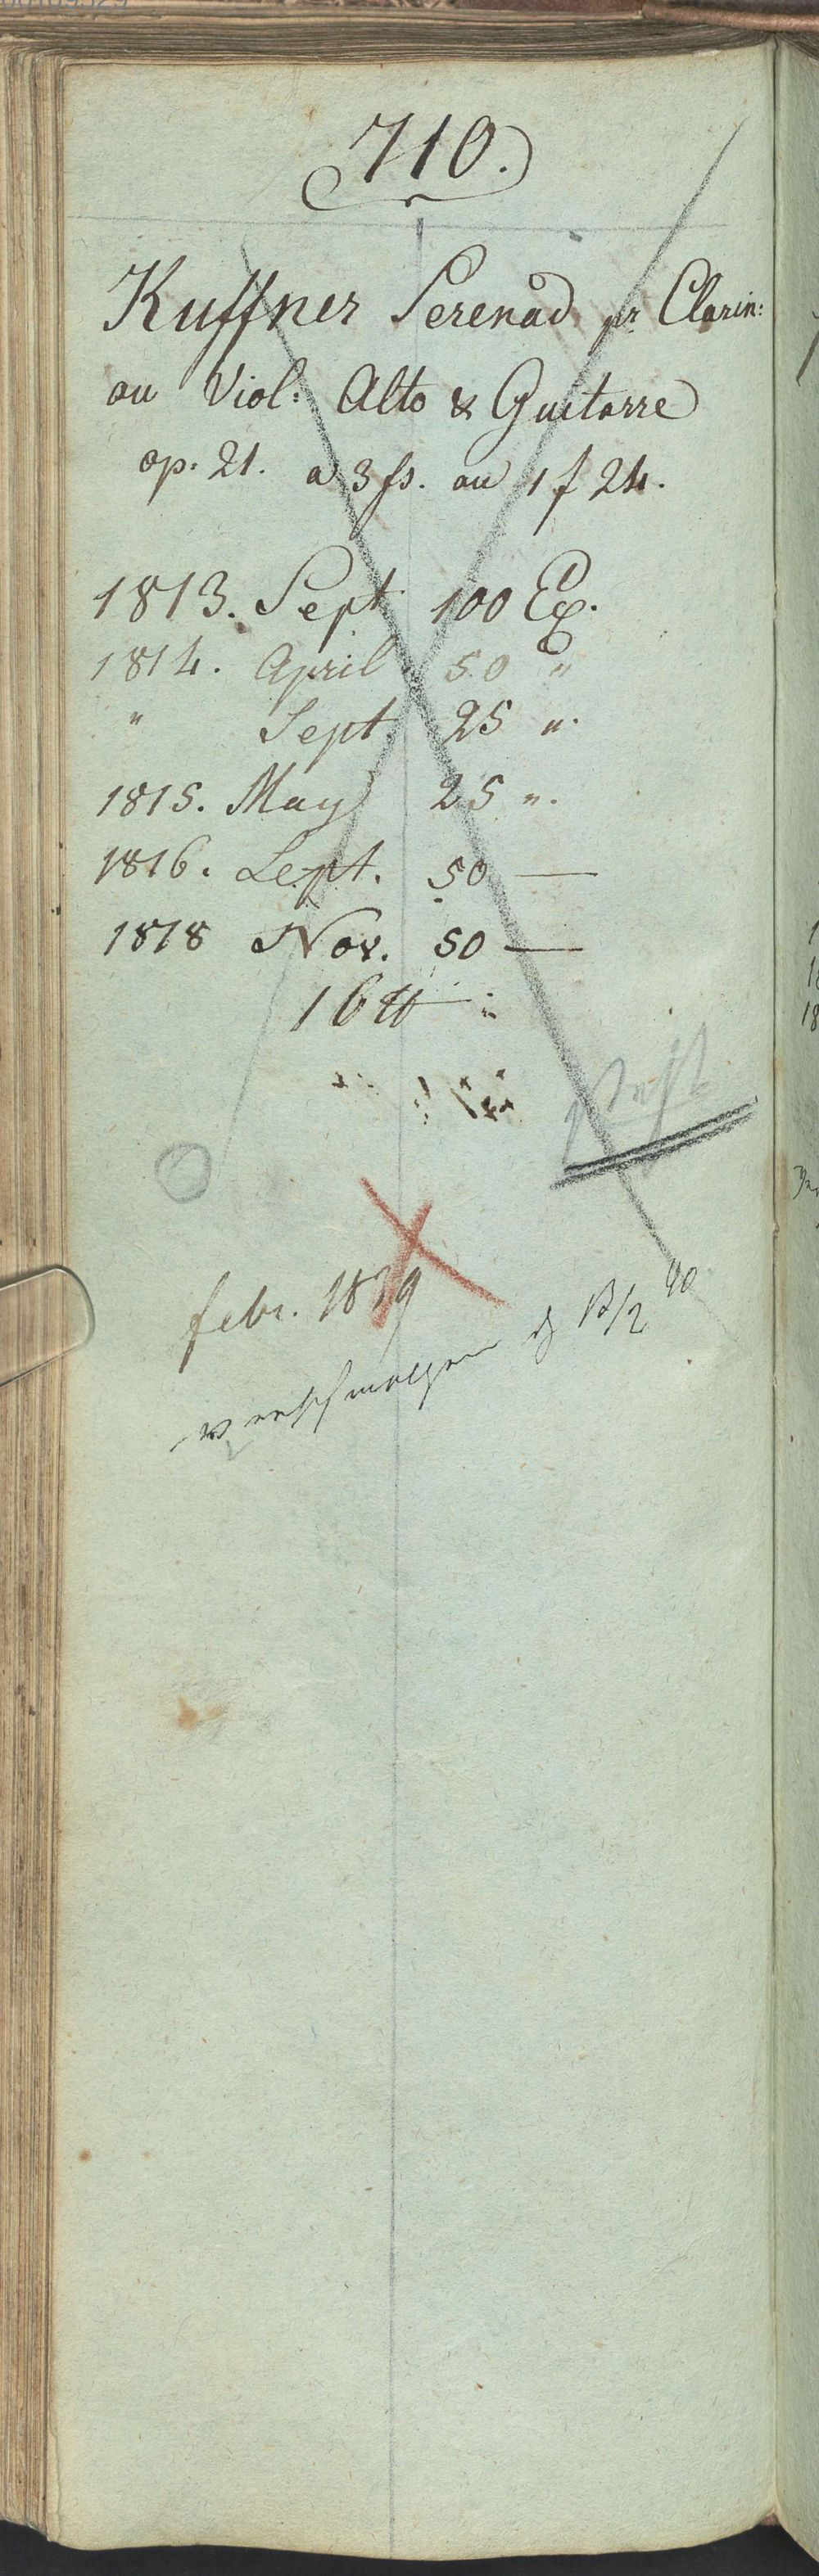 710.
Kuffner Serenad. pr. Clarin:
ou Viol: Alto & Guitarre
op. 21. a 3 fs. ou 1 f 24.
1813. Sept. 100 Ex.
1814. April 50 "
" Sept. 25 ".
1815. May 25 ".
1816. Sept. 50 —
1818 Nov. 50 —
16 ℔
febr. 1839
verschmolzen 13/2 40